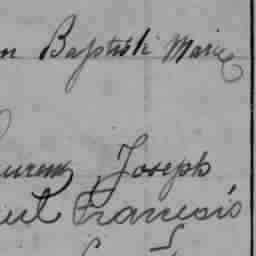 n Baptiste Marie
Laurent Joseph
eul Francois